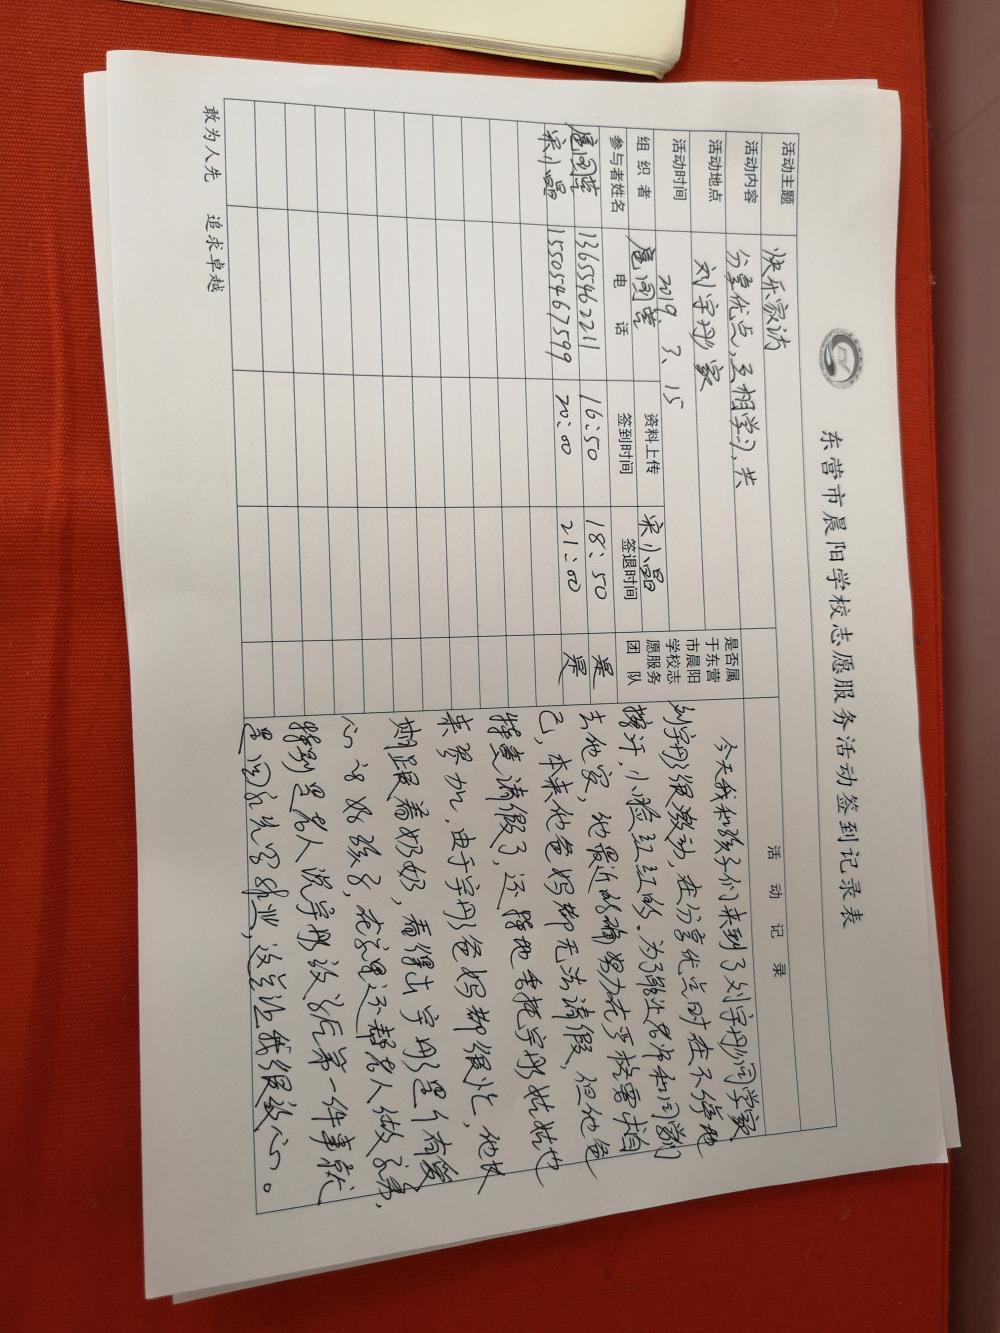 东营市晨阳学校志愿服务活动签到记录表
活动主题 快乐家访
活动内容 分享优点,互相学习,共
活动地点 刘宇彤家
活动时间 2019.3.15
组织者 扈闰营 资料上传 宋小晶
参与者姓名 电话 签到时间 签退时间
是否属
于东营
市晨阳
学校志
愿服务
团队
扈闰营 13655462211 16:50 18:50 是
宋小晶 15505467599 20:00 21:00 是
活动记录
今天我和孩子们来到了刘宇彤同学家
刘宇彤很激动,在分享优点时在不停地
擦汗,小脸红红的。为了能让老师和同学们
去他家,他最近的确努力在严格要求自
己,本来他爸妈都无法请假,但他爸
特意请假了,还接地委托宇彤姑姑也
来参加,由于宇彤爸妈都很忙,他长
期跟着奶奶,看得出宇彤是个有爱
心的好孩子,在家里还帮老人做家务,
特别是老人说宇彤放学后第一件事就
是回家先写作业,这点让我很放心。
敢为人先 追求卓越